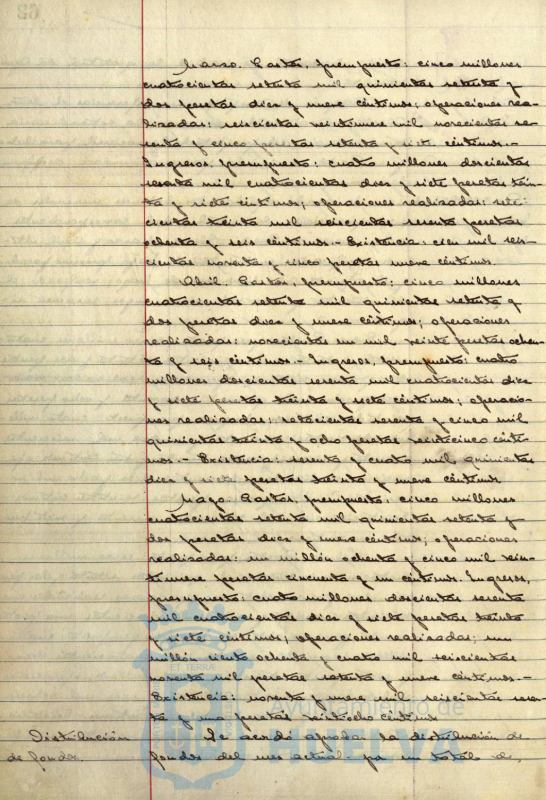 Marzo. Gastos, presupuesto: cinco millones
cuatrocientas setenta mil quinientas setenta y
dos pesetas diez y nueve céntimos; operaciones rea-
lizadas: seiscientas veintinueve mil novecientas se-
senta y cinco pesetas setenta y siete céntimos.-
Ingresos, presupuesto: cuatro millones doscientas
sesenta mil cuatrocientas diez y siete pesetas trein-
ta y siete céntimos; operaciones realizadas: sete-
cientas treinta mil seiscientas sesenta pesetas
ochenta y seis céntimos.- Existencia: cien mil seis-
cientas noventa y cinco pesetas nueve céntimos.
Abril. Gastos, presupuesto: cinco millones
cuatrocientas setenta mil quinientas setenta y
dos pesetas diez y nueve céntimos; operaciones
realizadas: novecientas un mil veinte pesetas ochen-
ta y seis céntimos.- Ingresos, presupuesto: cuatro
millones doscientas sesenta mil cuatrocientas diez
y siete pesetas treinta y siete céntimos; operacio-
nes realizadas: novecientas setenta y cinco mil
quinientas treinta y ocho pesetas veinticinco cénti-
mos.- Existencia: setenta y cuatro mil quinientas
diez y siete pesetas treinta y nueve céntimos
Mayo. Gastos, presupuesto: cinco millones
cuatrocientas setenta mil quinientas setenta y
dos pesetas diez y nueve céntimos; operaciones
realizadas: un millón ochenta y cinco mil vein-
tinueve pesetas cincuenta y un céntimos. Ingresos,
presupuesto: cuatro millones doscientas sesenta
mil cuatrocientas diez y siete pesetas treinta
y siete céntimos; operaciones realizadas; un
millón ciento ochenta y cuatro mil seiscientas
noventa pesetas setenta y nueve céntimos.-
Existencia: noventa y nueve mil seiscientas sesen-
ta y una pesetas veintiocho céntimos
Distribución Se acordó aprobar la distribución de
de fondos. fondos del mes actual por un total de,
ET TERRÆ
Ayuntamiento de
HUELVA
62